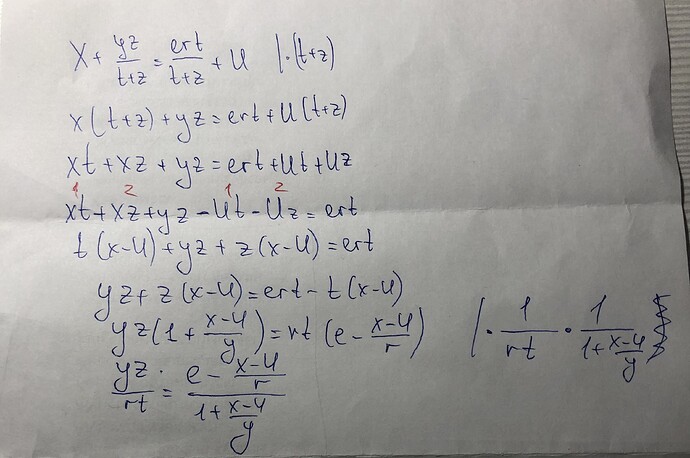 x + yz/(t+z) = ert/(t+z) + u |·(t+z)
x(t+z) + yz = ert + u(t+z)
xt + xz + yz = ert + ut + uz
1 2 1 2
xt + xz + yz - ut - uz = ert
t(x-u) + yz + z(x-u) = ert
yz + z(x-u) = ert - t(x-u)
yz(1 + (x-u)/y) = rt(e - (x-u)/r) |· 1/rt · 1/(1 + (x-u)/y)
yz/rt = (e - (x-u)/r)/(1 + (x-u)/y)